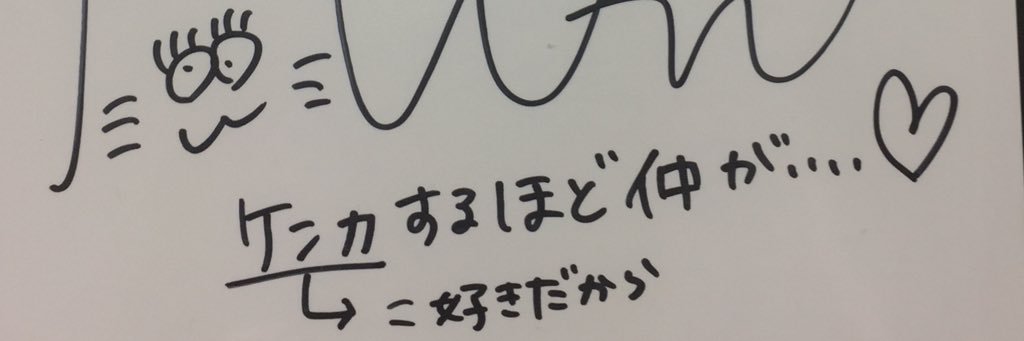 ケンカするほど仲が‥‥♡
↳=好きだから